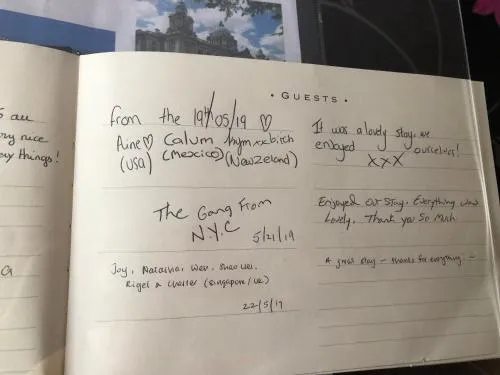 s au
ry nice
ey things!
a
• GUESTS •
from the 19th/05/19 ♡
Aine♡ Calum
(USA) (Mexico) (NewZeland)
The Gang From
N.Y.C 5/21/19
Joy, Wen, Shao Wei,
Rigel & Charles (Singapore/UK)
22/5/19
It was a lovely stay, we
enjoyed ourselves!
XXX
Enjoyed our Stay. Everything was
Lovely. Thank you So Much.
A great stay – thanks for everything –